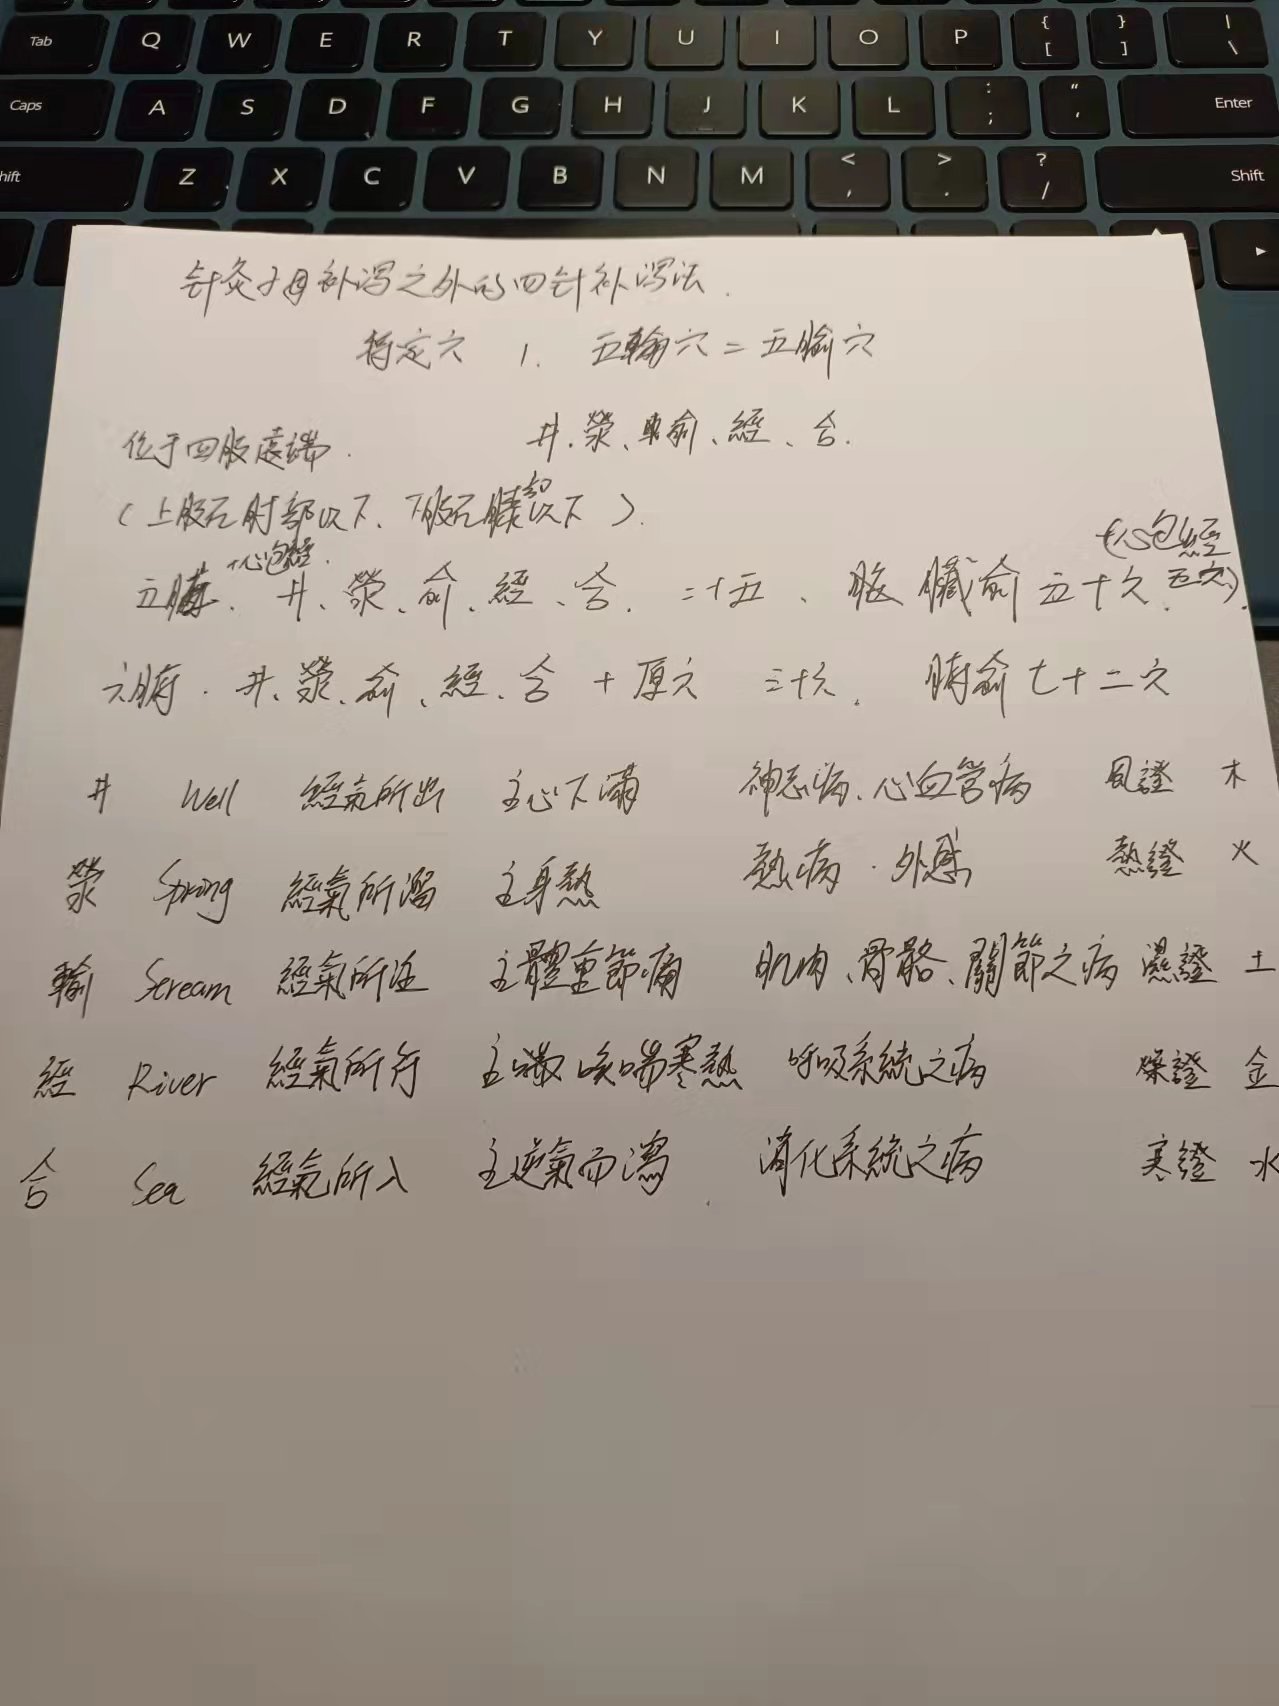 Tab Q W E R T Y U I O P { [ } ] | \
Caps A S D F G H J K L : ; " ' Enter
hift Z X C V B N M < , > . ? / Shift
针灸子母补泻之外的四针补泻法.
特定穴 1. 五輸穴=五腧穴
井、滎、輸、經、合.
位于四肢遠端.
(上肢在肘部以下、下肢在膝部以下).
五臟+心包經. 井、滎、俞、經、合. 二十五、 臟俞五十穴. (+心包經五穴).
六腑. 井、滎、俞、經、合 + 原穴 三十六. 腑俞七十二穴
井 Well 經氣所出 主心下滿 神志病、心血管病 風證 木
滎 Spring 經氣所溜 主身熱 熱病.外感 熱證 火
輸 Stream 經氣所注 主體重節痛 肌肉、骨骼、關節之病 濕證 土
經 River 經氣所行 主喘咳喘寒熱 呼吸系統之病 燥證 金
合 Sea 經氣所入 主逆氣而瀉 消化系統之病 寒證 水